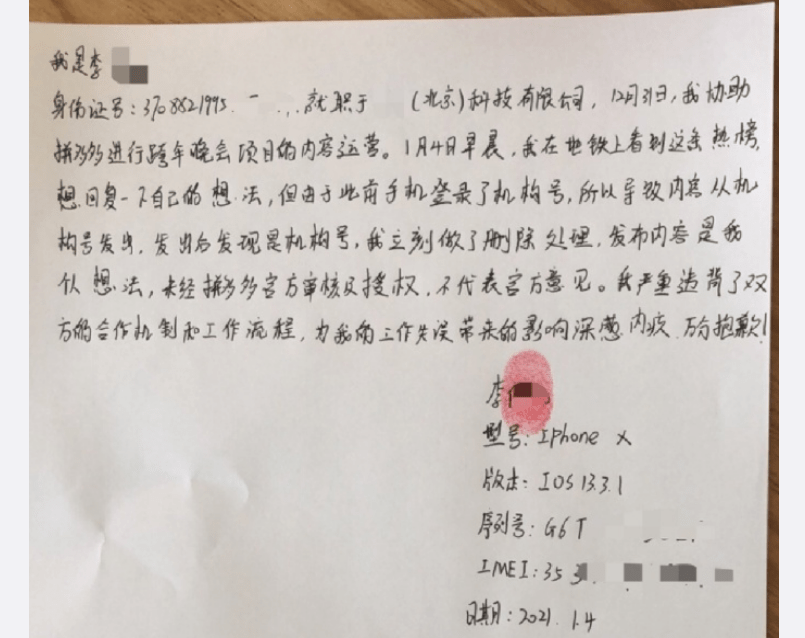 我是李
身份证号：3708821995. 就职于 （北京）科技有限公司，12月31日，我协助
拼多多进行跨年晚会项目的内容运营。1月4日早晨，我在地铁上看到这条热榜，
想回复一下自己的想法，但由于此前手机登录了机构号，所以导致内容从机
构号发出，发出后发现是机构号，我立刻做了删除处理，发布内容是我
个人想法，未经拼多多官方审核及授权，不代表官方意见。我严重违背了双
方的合作机制和工作流程，为我的工作失误带来的影响深感内疚，万分抱歉！
李
型号：IPhone X
版本：IOS 13.3.1
序列号：G6T
IMEI：35
日期：2021.1.4